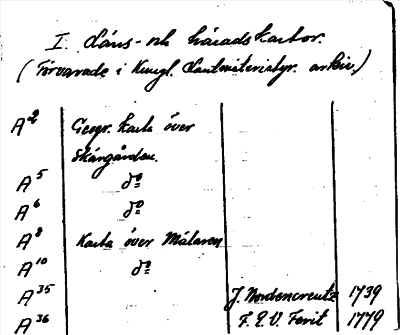 I. Läns- och häradskartor.
(Förvarade i Kungl. Lantmäteristyr. arkiv.)
A² Geogr. karta över
Skärgården.
A⁵ dº
A⁶ dº
A⁸ Karta över Mälaren
A¹⁰ dº
A³⁵ J. Nordencreutz 1739
A³⁶ 1779